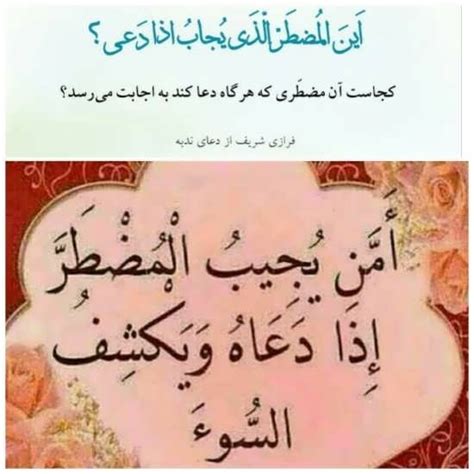 اَینَ الْمُضطَرُّ الَّذی یُجابُ اذا دَعی ؟
کجاست آن مضطَری که هرگاه دعا کند به اجابت می‌رسد؟
فرازی شریف از دعای ندبه
أَمَّن يُجِيبُ الْمُضْطَرَّ
إِذَا دَعَاهُ وَيَكْشِفُ
السُّوءَ